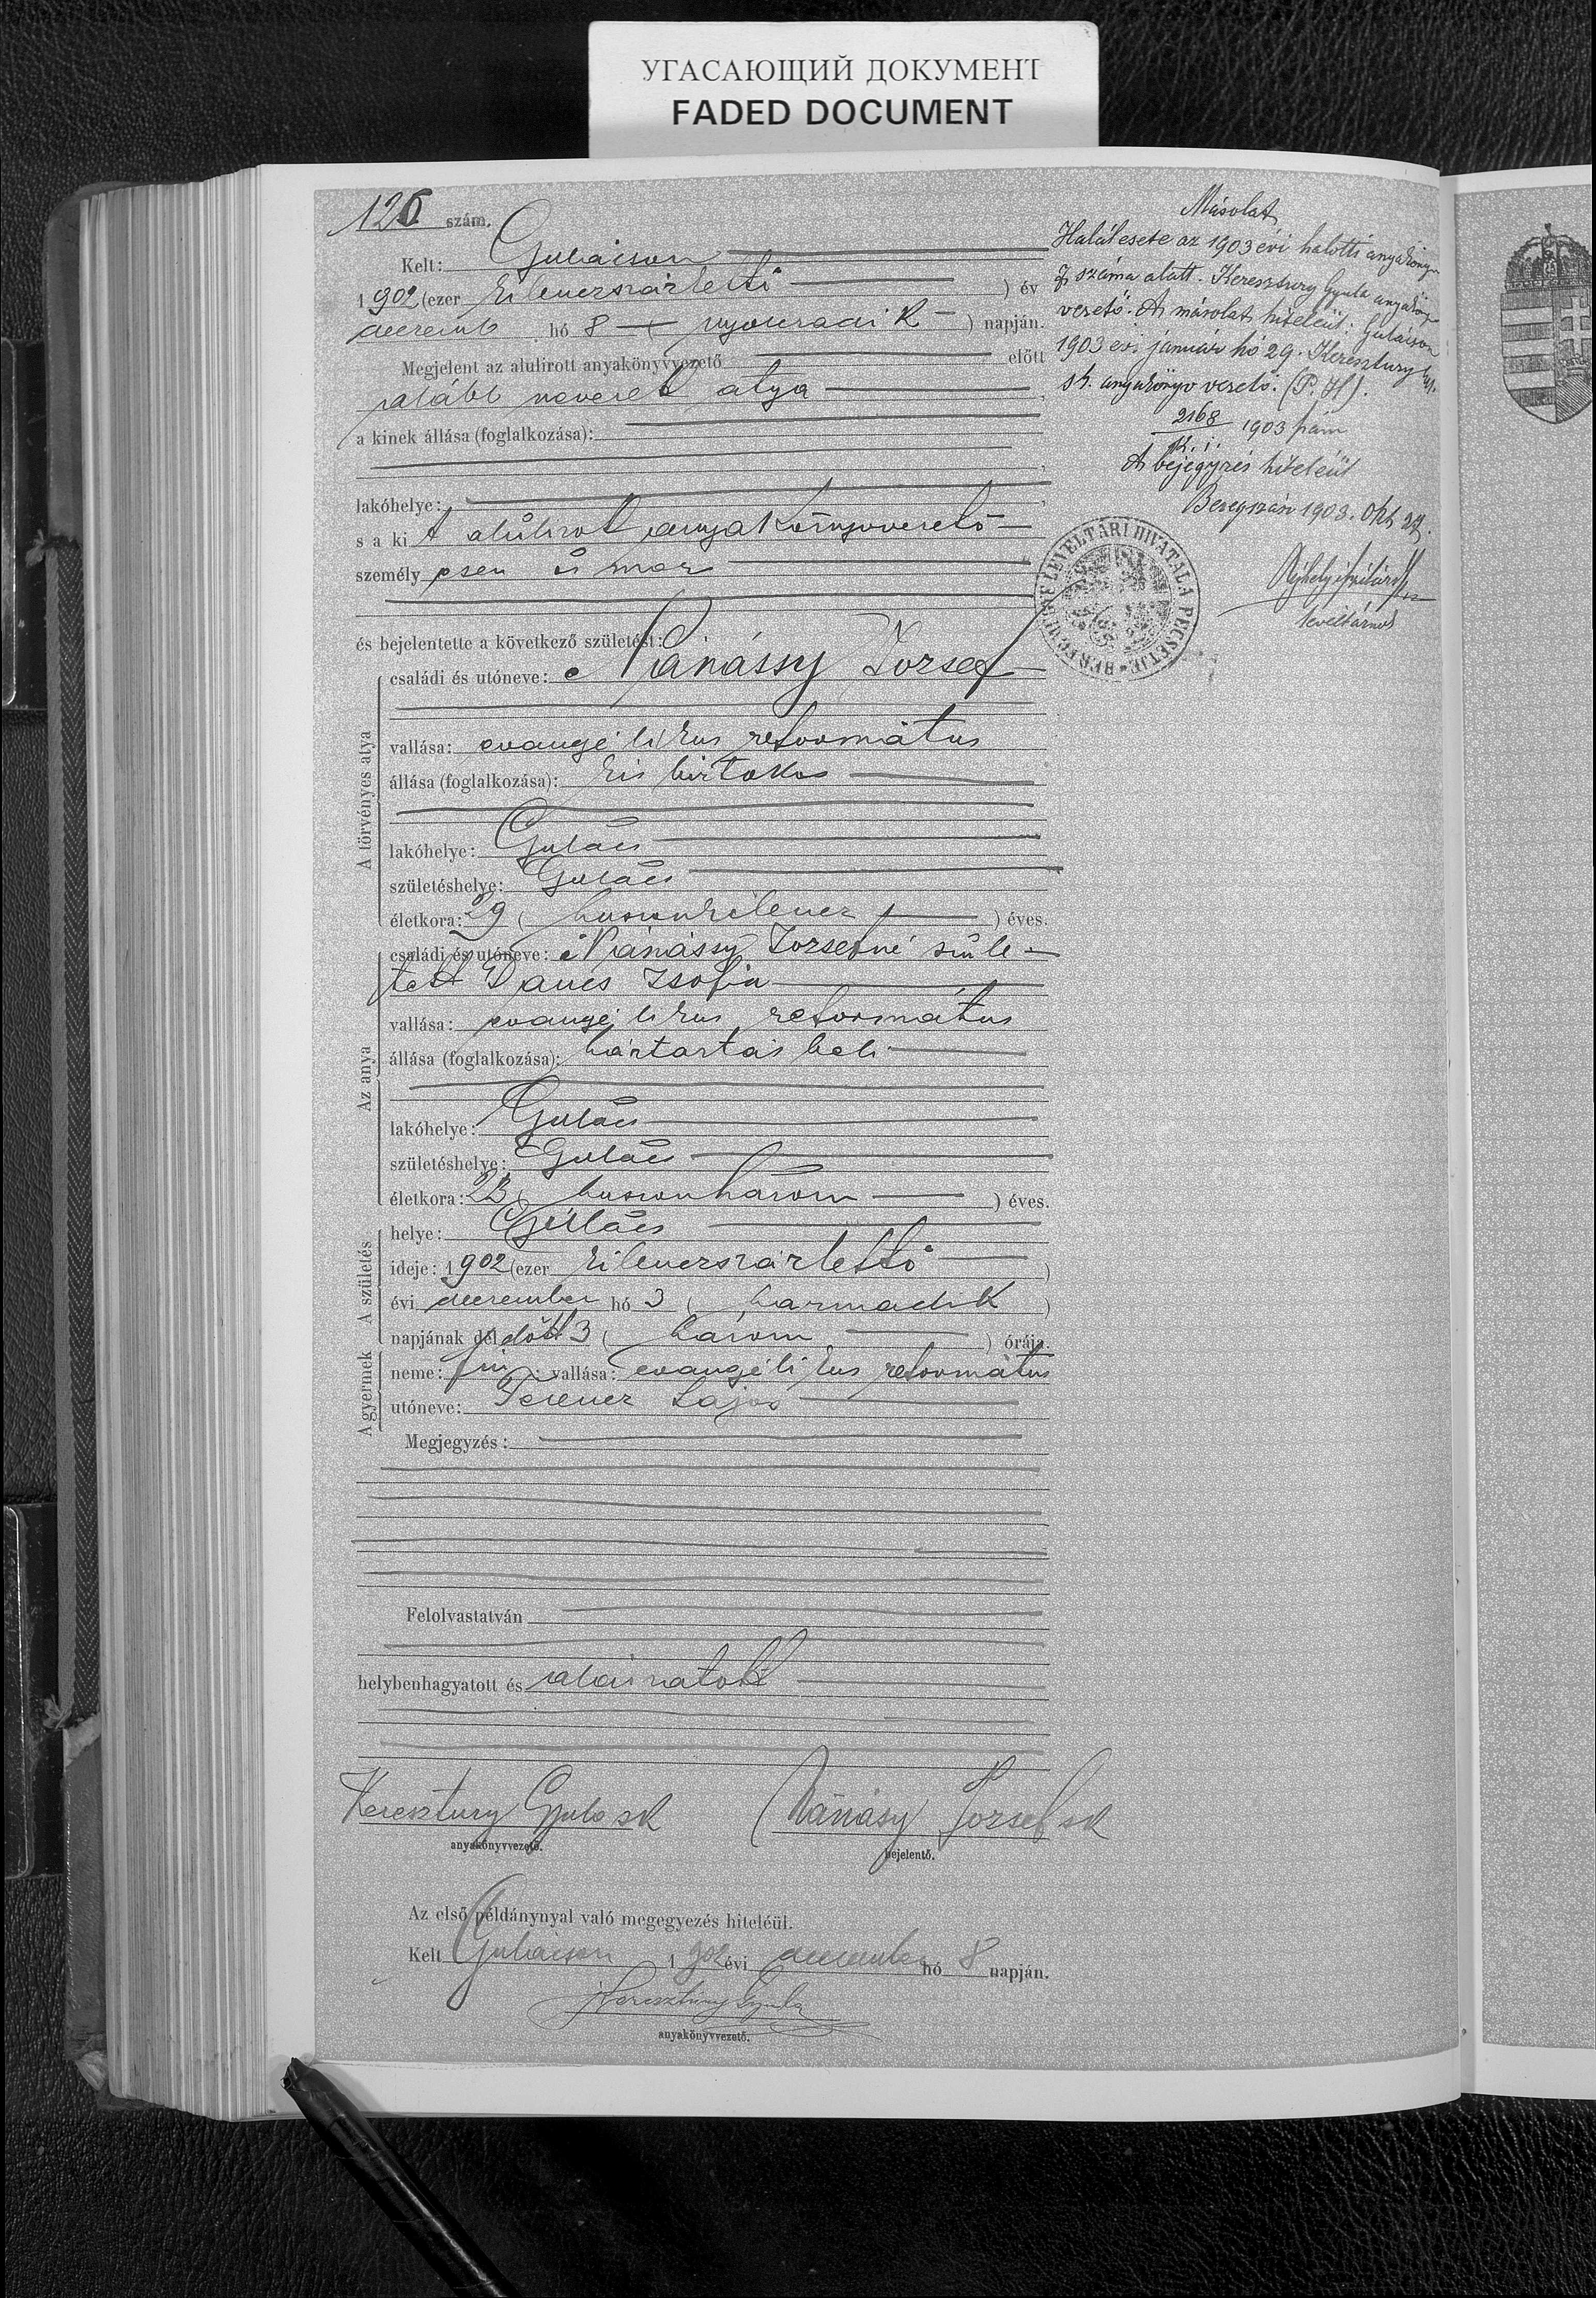 УГАСАЮЩИЙ ДОКУМЕНТ
FADED DOCUMENT
126 szám.
Kelt: Gulácson
1902 (ezer kilencszázkettő) év
decemb hó 8 (nyolczadik) napján.
Megjelent az alulirott anyakönyvvezető előtt
alább nevezett atya
a kinek állása (foglalkozása):
lakóhelye:
s a ki A alulirott anyakönyvvezető
személy esen is mer
és bejelentette a következő születést:
A törvényes atya
családi és utóneve: Nánássy József
vallása: evangélikus református
állása (foglalkozása): kis birtokos
lakóhelye: Gulács
születéshelye: Gulács
életkora: 29 (huszonkilencz) éves.
Az anya
családi és utóneve: Nánássy Józsefné szüle-
tett Dancs Zsófia
vallása: evangélikus református
állása (foglalkozása): háztartás beli
lakóhelye: Gulács
születéshelye: Gulács
életkora: 23 (huszonhárom) éves.
A születés
helye: Gulács
ideje: 1902 (ezer kilenczszázkettő)
évi deczember hó 3 (harmadik)
napjának dél előtt 3 (három) órája.
A gyermek
neme: fiu; vallása: evangélikus református
utóneve: Ferencz Lajos
Megjegyzés:
Felolvastatván
helybenhagyatott és aláiratott
Keresztury Gyula sk
anyakönyvvezető.
Nánásy József sk
bejelentő.
Az első példánynyal való megegyezés hiteléül.
Kelt Gulácson 1902 évi december hó 8 napján.
Keresztury Gyula
anyakönyvvezető.
Másolat
Halálesete az 1903 évi halotti anyakönyv
száma alatt. Keresztury Gyula anyaköny
vezető. A másolat hiteléül: Gulácson
1903 évi január hó 29. Keresztury
sk. anyakönyv vezető. (P.H).
2168 1903 szám
K. i.
A bejegyzés hiteléül
Beregszász 1903. Okt 27.
levéltárnok
BEREGMEGYE LEVÉLTÁRI HIVATALA PECSÉTJE